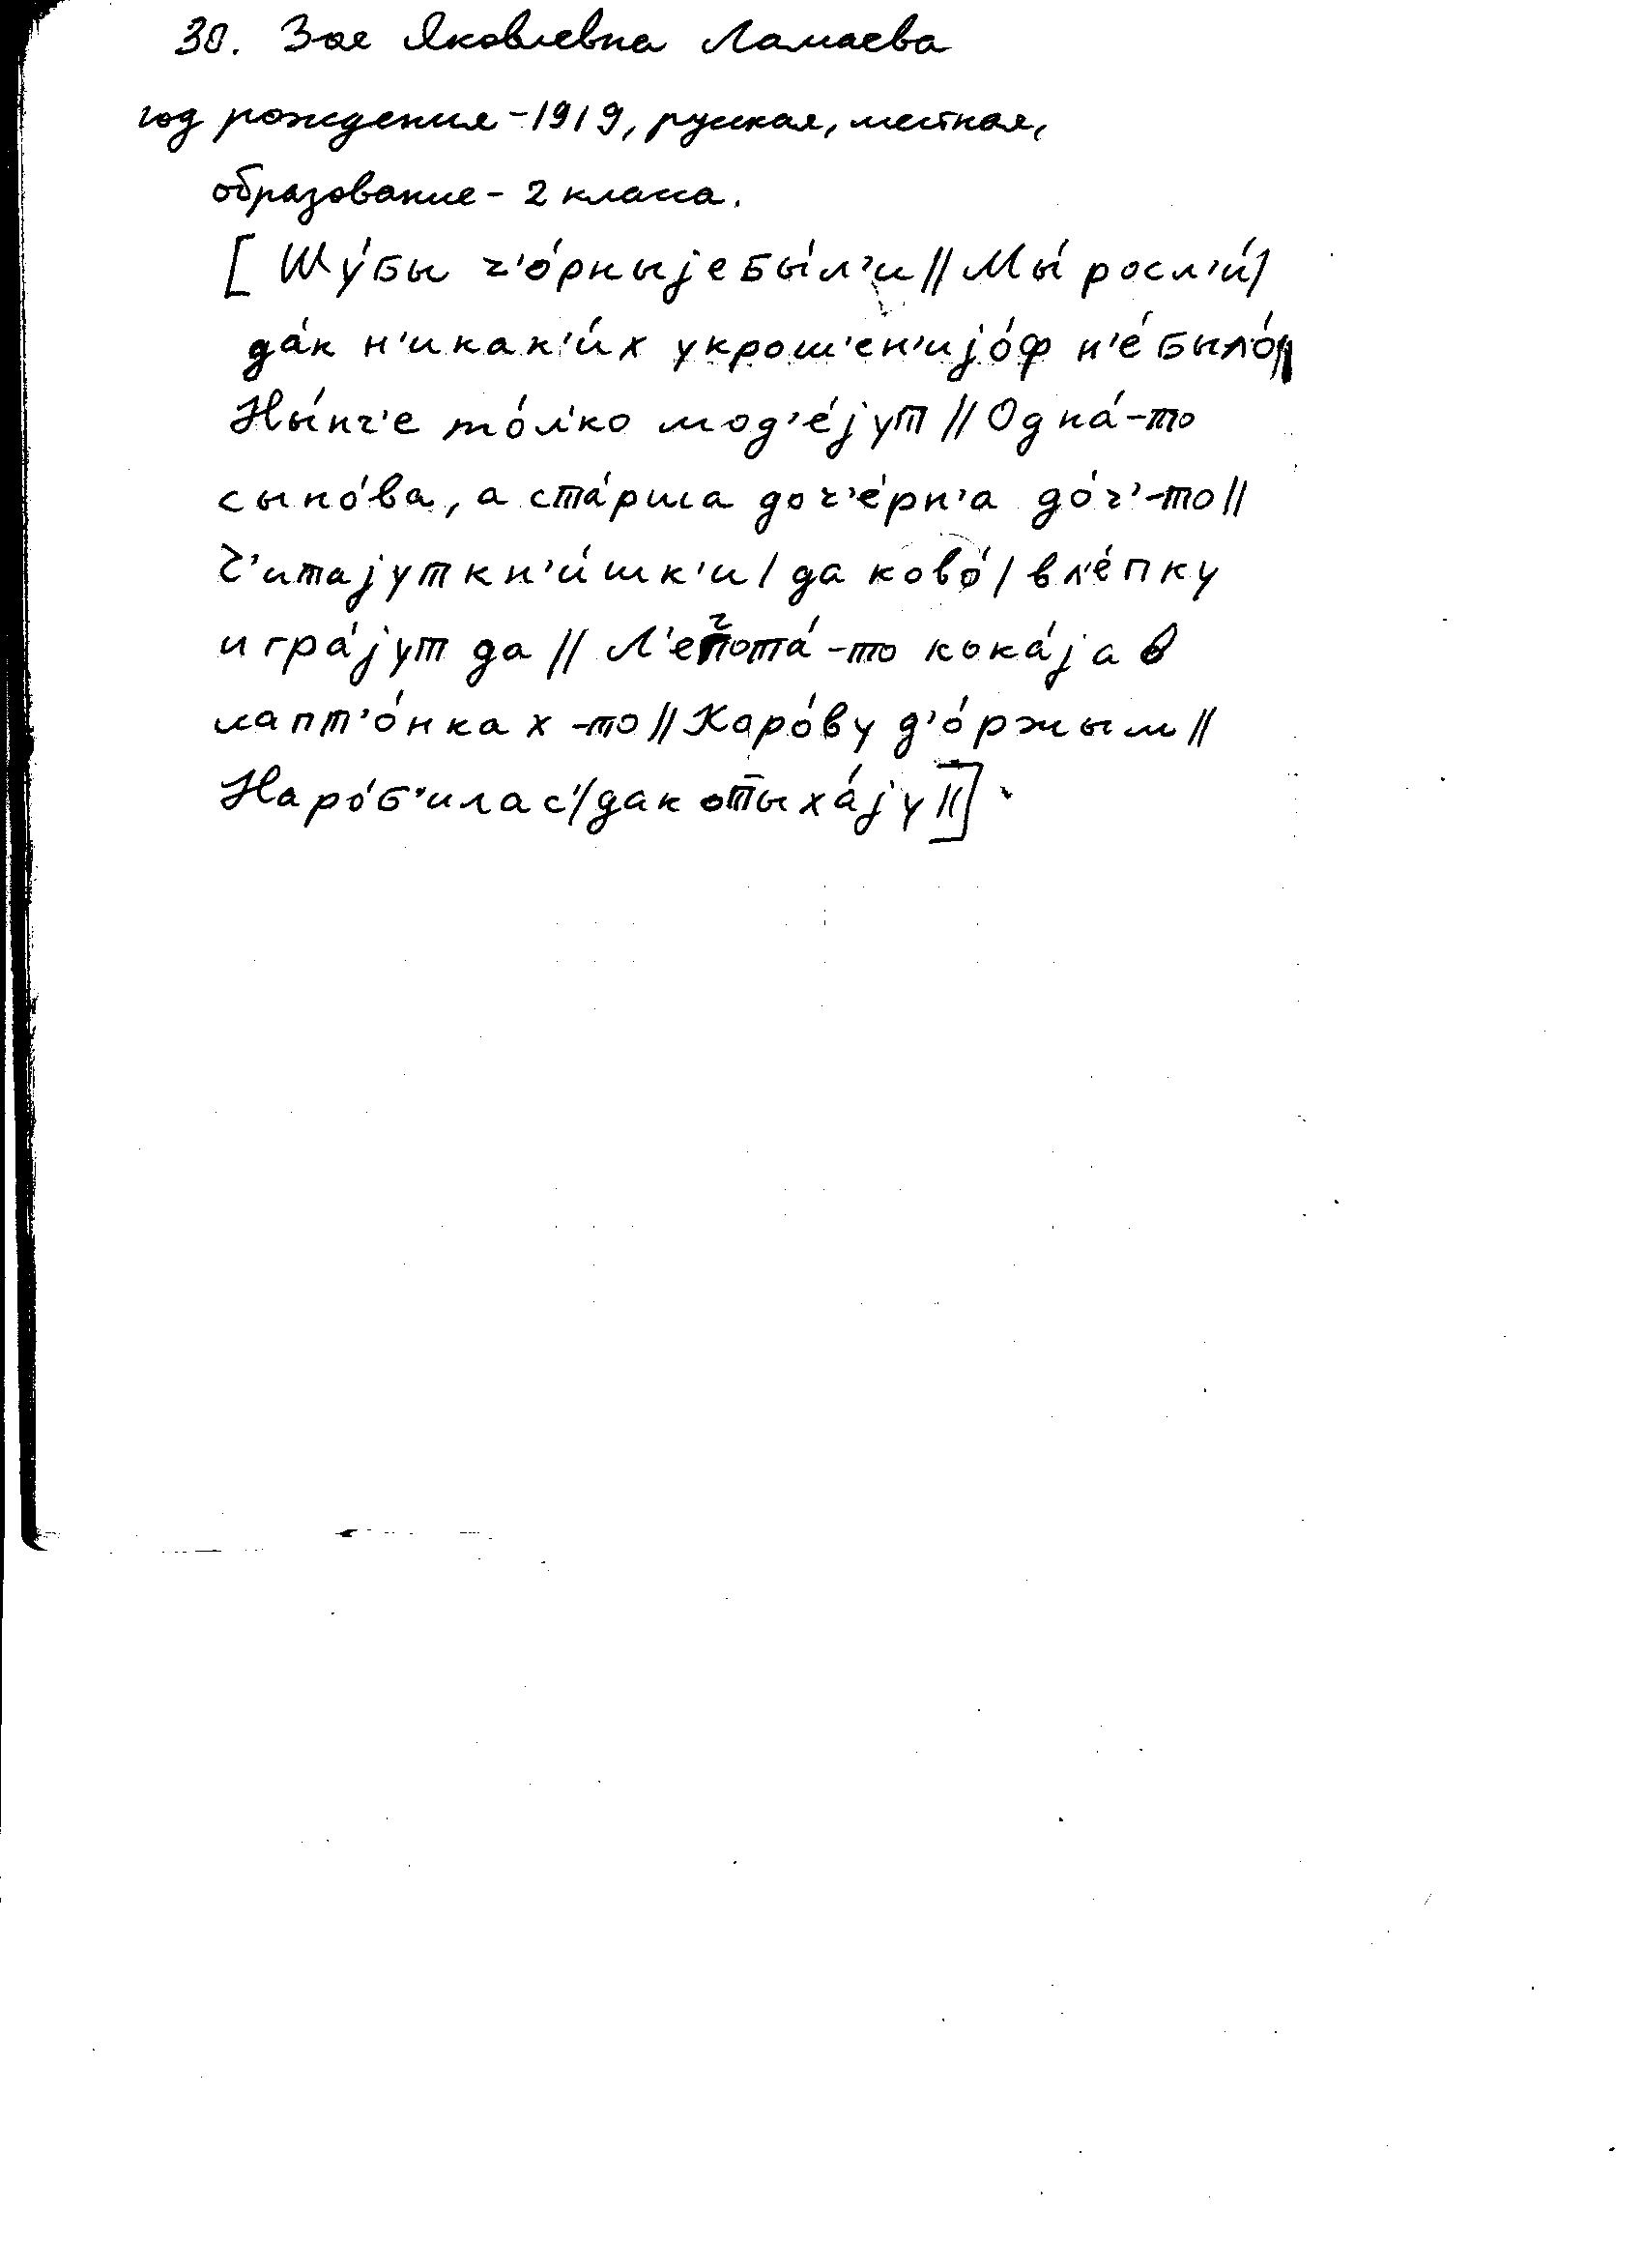 30. Зое Яковлевна Ламаева
год рождения - 1919, русская, местная,
образование - 2 класса.
[Шу́бы ч'о́рныjе бы́л'и // Мы́ росл'и́ /
да́к н'икак'и́х укрош'ен'иjо́ф н'е́ было́ //
Ны́нч'е то́л'ко мод'е́jут // Одна́-то
сыно́ва, а ста́рша доч'е́рн'а до́ч'-то //
Ч'итаjут кн'и́шк'и / да ково́ / в л'е́пку
игра́jут да // Л'епота́-то кака́jа в
лапт'о́нках-то // Каро́ву д'о́ржым //
Наро́б'илас' / дак от̄ыха́jу //].